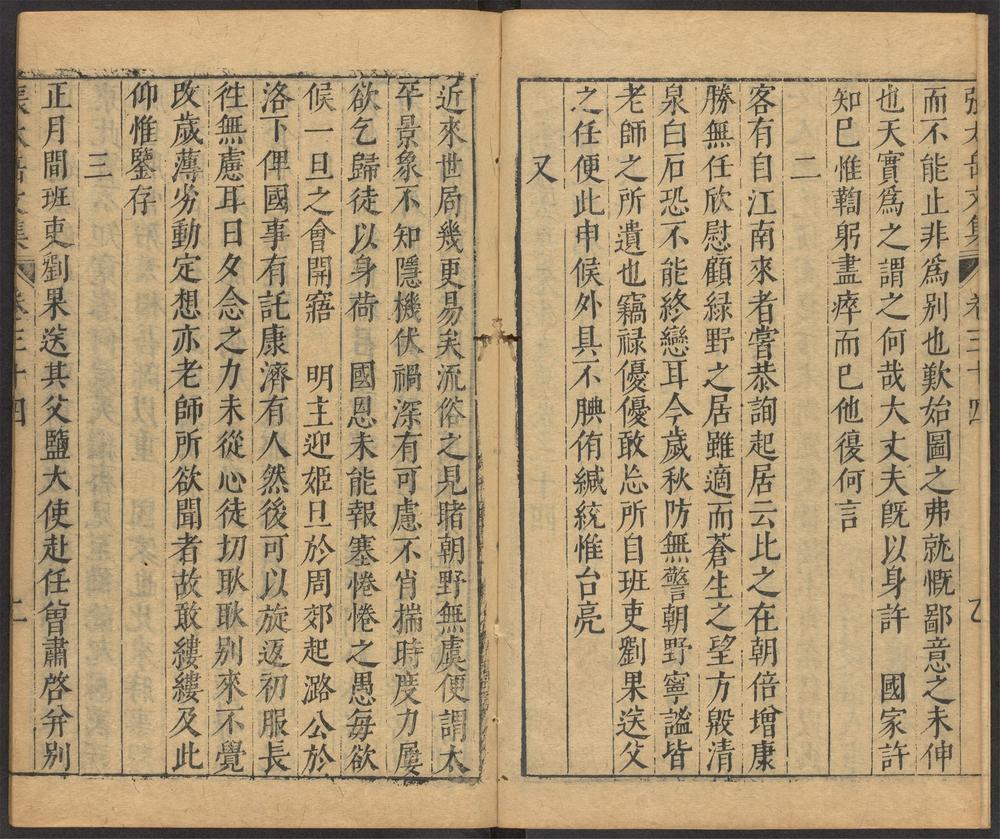 張太岳文集 卷三十四
而不能止非爲别也歎始圖之弗就慨鄙意之未伸
也天實爲之謂之何哉大丈夫旣以身許 國家許
知巳惟鞫躬盡瘁而巳他復何言
二
客有自江南來者嘗恭詢起居云比之在朝倍增康
勝無任欣慰顧緑野之居雖適而蒼生之望方殷清
泉白石恐不能終戀耳今歲秋防無警朝野寧謐皆
老師之所遺也竊禄優優敢忘所自班吏劉果送父
之任便此申候外具不腆侑緘統惟台亮
又
近來世局幾更易矣流俗之見睹朝野無虞便謂太
平景象不知隱機伏禍深有可慮不肖揣時度力屢
欲乞歸徒以身荷 國恩未能報塞惓惓之愚每欲
候一旦之會開寤 明主迎姬旦於周郊起潞公於
洛下俾國事有託康濟有人然後可以旋返初服長
徃無慮耳日夕念之力未從心徒切耿耿别來不覺
改歲薄劣動定想亦老師所欲聞者故敢縷縷及此
仰惟鑒存
三
正月間班吏劉果送其父鹽大使赴任曾肅啓分别
張太岳文集 卷三十四 二